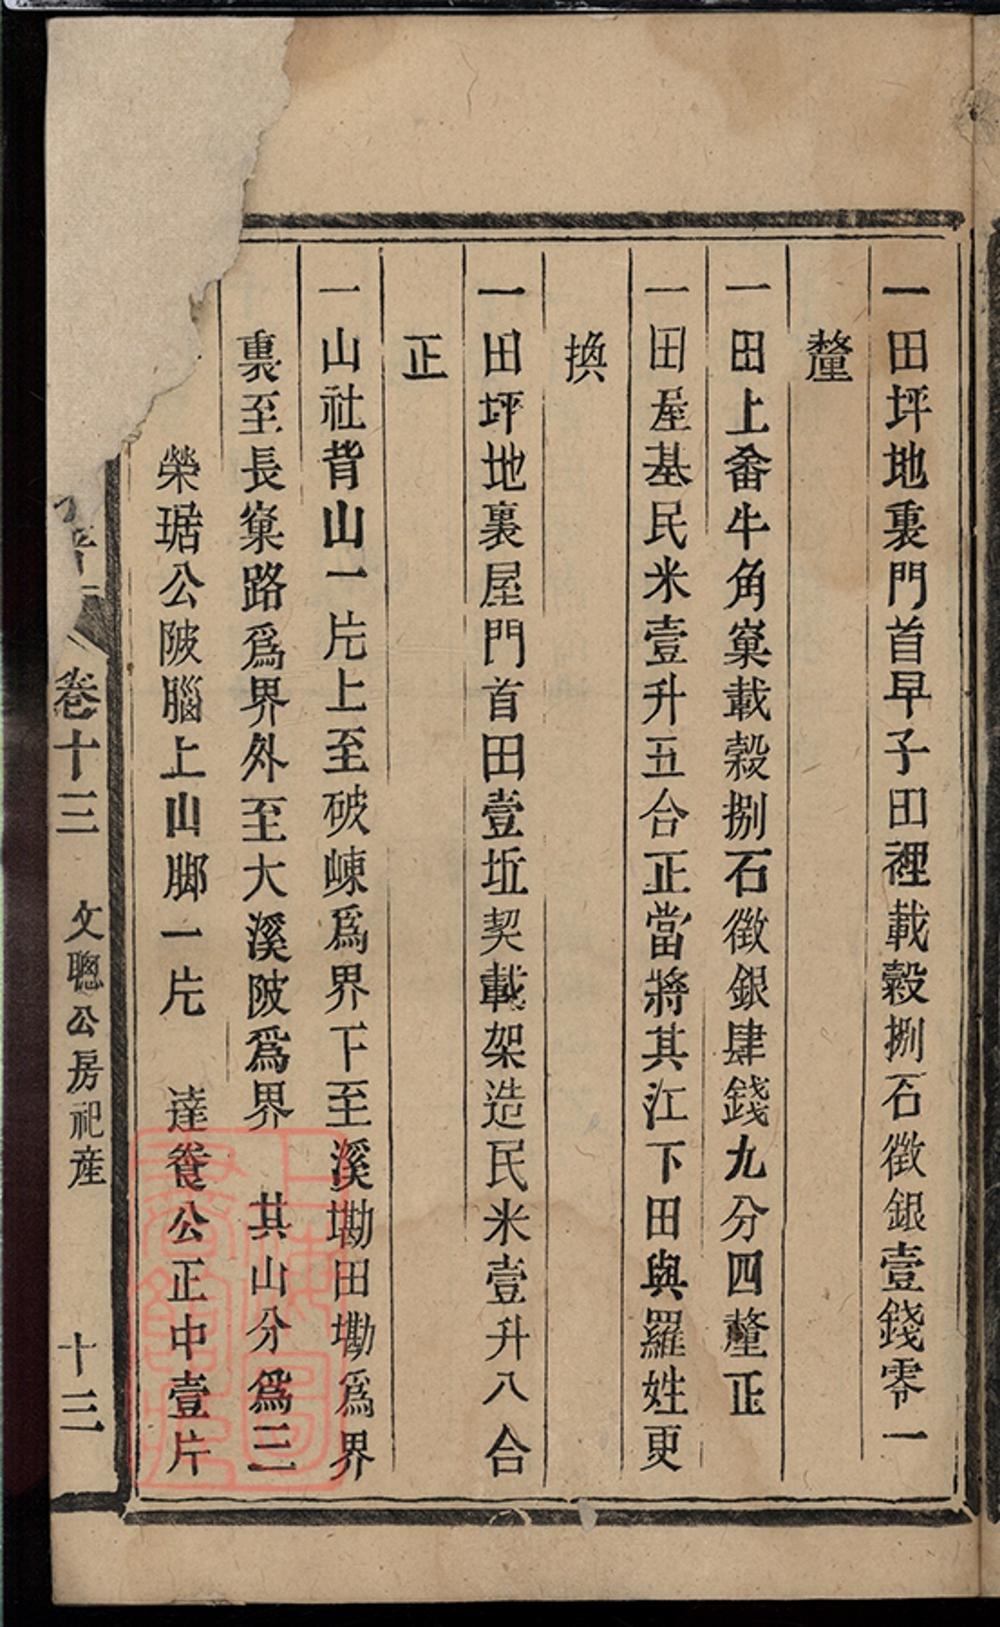 一田坪地裏門首早子田裡載穀捌石徵銀壹錢零一
釐
一田上畬牛角窠載穀捌石徵銀肆錢九分四釐正
一田屋基民米壹升五合正當將其江下田與羅姓更
換
一田坪地裏屋門首田壹坵契載架造民米壹升八合
正
一山社背山一片上至破崠爲界下至溪墈田墈爲界
裏至長窠路爲界外至大溪陂爲界 其山分爲三
榮琚公陂腦上山脚一片 達養公正中壹片
卷十三 文聰公房祀產 十三